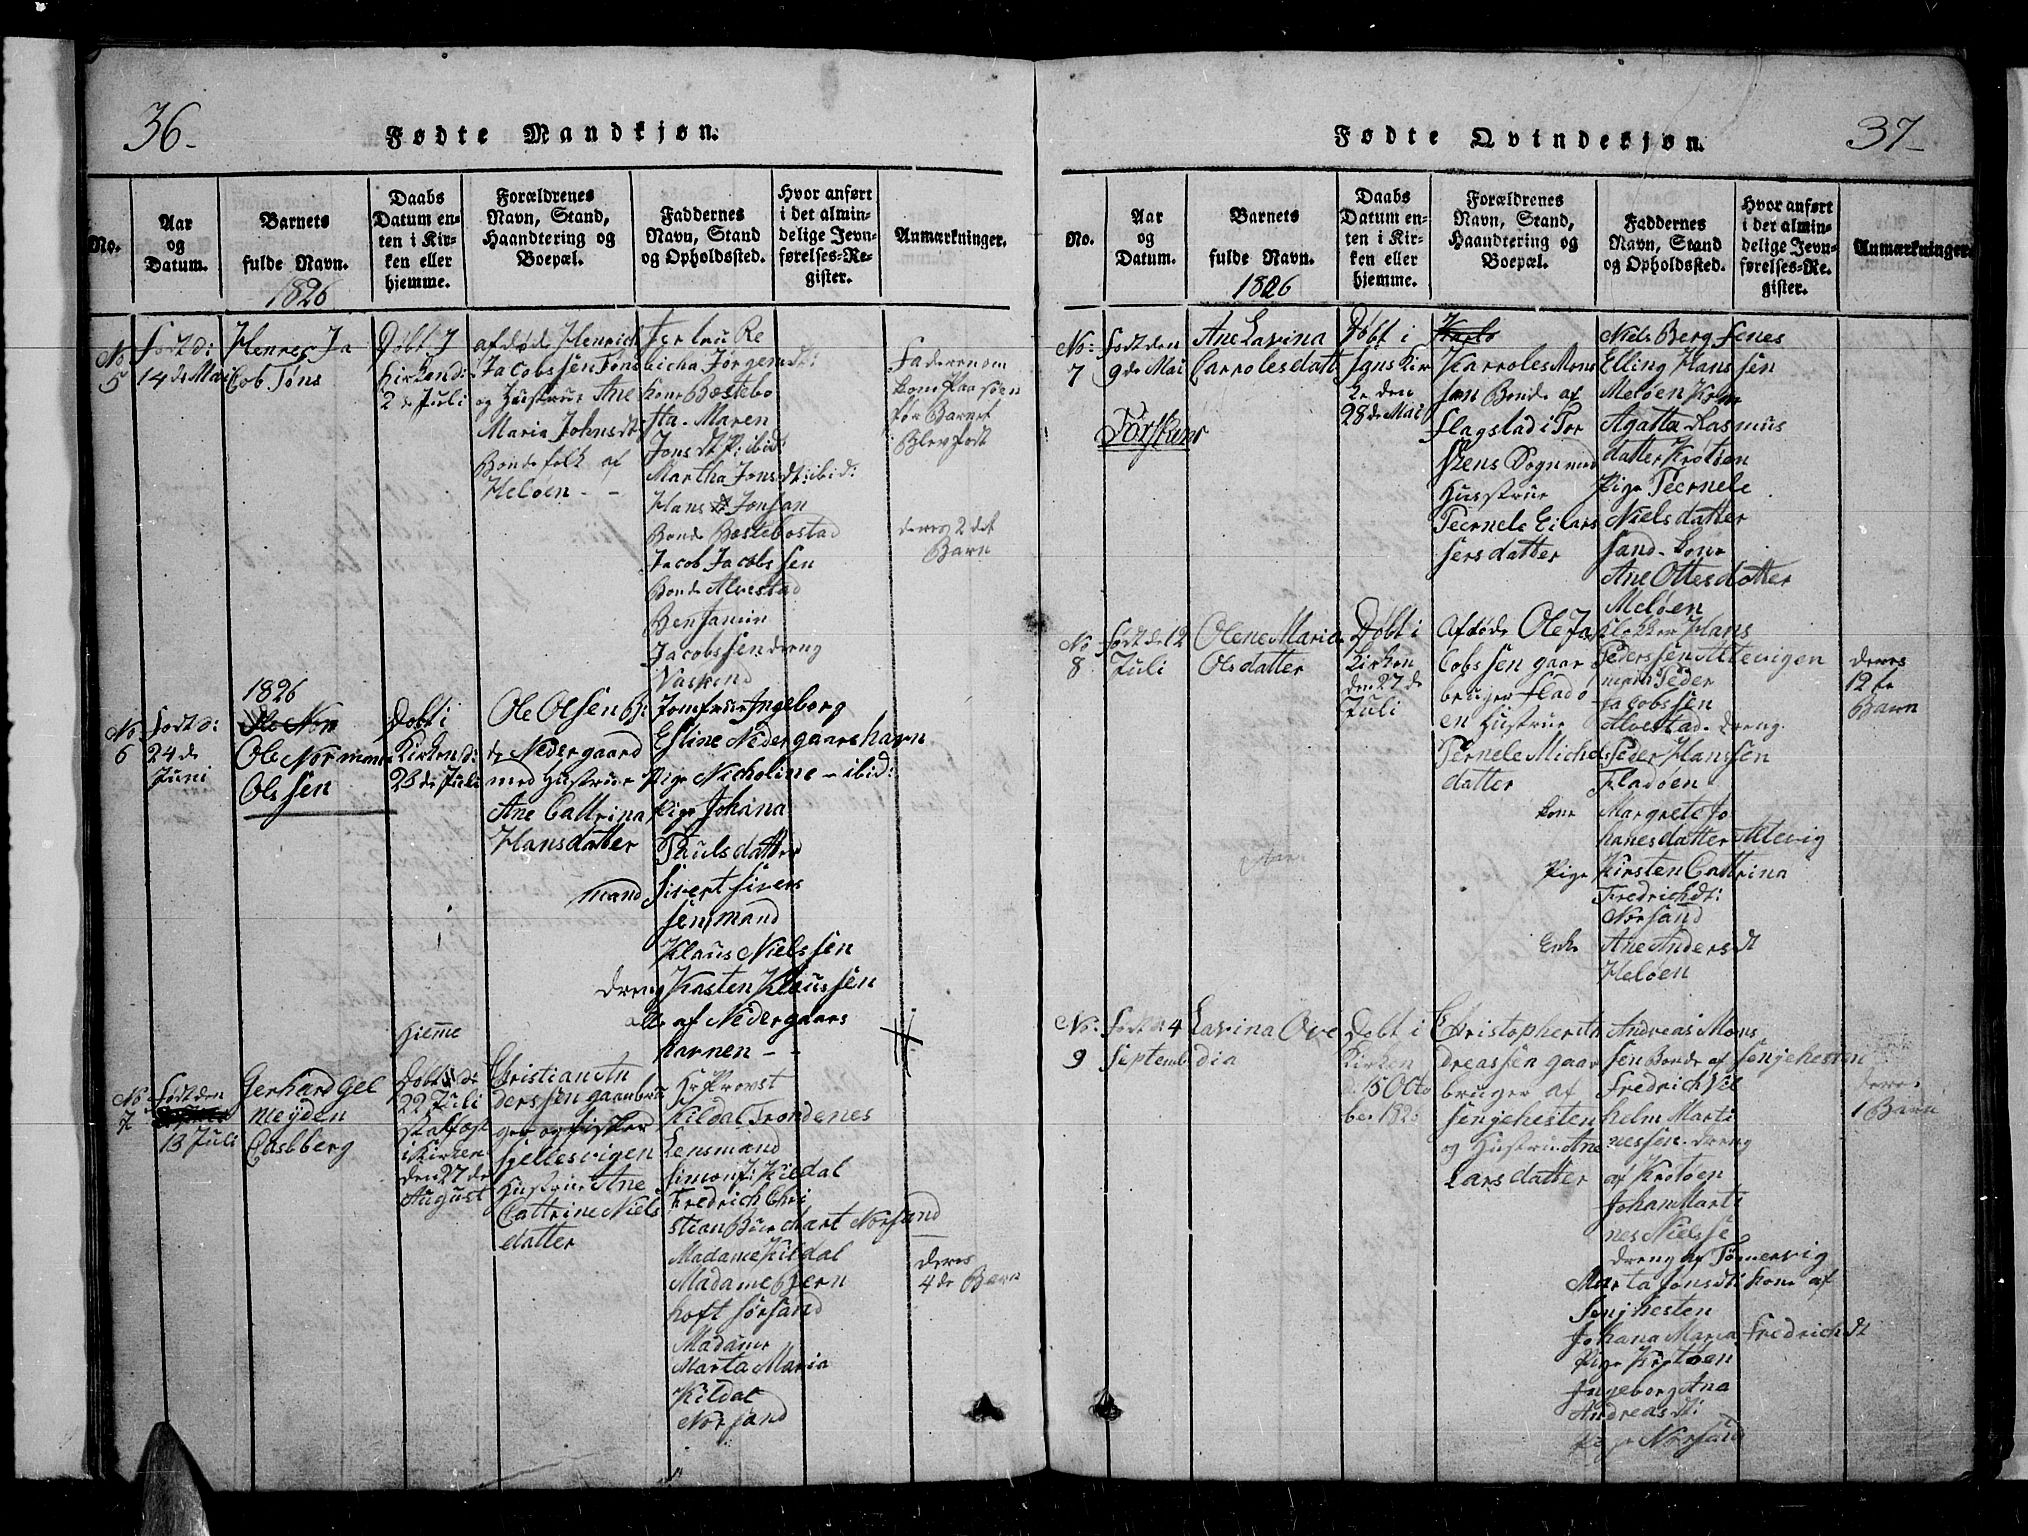 36.
Fødte Mandkjøn.
No.
Aar
og
Datum.
Barnets
fulde Navn.
1826
Daabs
Datum en-
ten i Kir-
ken eller
hjemme.
Forældrenes
Navn, Stand,
Haandtering og
Boepæl.
Faddernes
Navn, Stand
og Opholdssted.
Hvor anført
i det almin-
delige Jevn-
førelses-Re-
gister.
Anmærkninger.
No
5
Født d:
14 de Mai
Henrec Ja
cob Tøns
Døbt I
Kirken d:
2 de Juli
afdøde Henrich
Jacobssen Tøns
og Hustrue Ane
Maria Johnsdt
Bondefolk af
Heløen - -
Jertru Re
bicha Jørgensdt:
Kone Bæstebo
sta. Maren
Jonsdt P: ibid
Martha Jonsdt: ibid:
Hans Jonsan
Bonde Bestebostad
Jacob Jacobssen
Bonde Alvestad
Benjamin
Jacobssen dreng
Faderen om
kom paa søen
før Barnet
Blev født
deres 2 det
Barn
1826
No
6
Født d:
24 de
Juni
Ole Nor
Ole Norman
Olssen
Døbt i
Kirken d:
23 de Juli
Ole Olsen B:
de Nedergaard
med Hustrue
Ane Cattrina
Hansdatter
Jomfrue Ingeborg
Esline Nedergaars havn
Pige Nicholine - ibid:
Pige Johana
Paulsdatter
mand Sivert Sivers
sen mand
Klaus Nielssen
dreng Kasten Klaussen
alle af Nedergaars
havnen - -
No
7
Født den
13 Juli
Gerhard Gel
meyden
Casberg
Hjemme
Døbt de
22 Juli
stalfæst
i Kirken
den 27 de
August
Christian An
derssen gaarbru
ger og fisker
Gjellesvigen
Hustrue Ane
Cattrine Niels
datter
Hr Provst
Kildal Trondenes
Lensmand
Simon J: Kildal
Fredrich Chri
stian Burchart Norsand
Madame Kildal
Madame Bjern
hoft Sørsand
Madame
Marta Maria
Kildal
Norsand
deres
4 de Barn
37
Fødte Qvindekjøn.
No.
Aar
og
Datum.
Barnets
fulde Navn.
1826
Daabs
Datum en-
ten i Kir-
ken eller
hjemme.
Forældrenes
Navn, Stand,
Haandtering og
Boepæl.
Faddernes
Navn, Stand
og Opholdssted.
Hvor anført
i det almin-
delige Jevn-
førelses-Re-
gister.
Anmærkninger.
No:
7
Født den
9 de Mai
Ane Lavina
Carrolesdatt
Døbt i
Sans Kir
ke den
28 de Mai
Karroles Mons
sen Bonde af
Flagstad i Tor
skens Sogn med
Hustrue
Peernele Eilars
sersdatter
Niels Berg Senes
Elling Hanssen
Meløen Kone
Agatta Rasmus
datter Krøtøen
Pige Peernele
Nielsdatter
Sand - kone
Ane Ottesdatter
Meløen
No
8
Født de 12
Juli
Olene Maria
Olsdatter
Døbt i
Kirken
den 27 de
Juli
Afdøde Ole Ja
cobssen gaar
bruger Fladø
en Hustrue
Pernele Michels
datter
Klokker Hans
Pederssen Altevigen
mand Peder
Jacobssen
Alvestad - dreng
Peder Hanssen
Fladøen
kone Margrete Jo
hanesdatter Altevig
Pige Kirsten Cattrina
Fredrichdt:
Norsand
Enke Ane Andersdt
Heløen
deres
12 te
Barn
No:
9
Født d: 4
Septemb
Lavina Ove
dia
Døbt i
Kirken
d. 15 Octo
ber 182
Christopher An
dreassen gaar
bruger af
Senjehesten
og Hustrue Ane
Larsdatter
Andreas Mons
sen Bonde af Senjehesten
Fredrich Vil
helm Marti
nessen - dreng
af Krøtøen
Johan Marti
nes Nielsse
dreng af Tønnervig
Marta Jonsdt: kone af
Senjhesten
Johana Maria Fredrichdt
Pige Krøtøen
Ingeborg Ana
Andreasdt:
Pige Norsand
deres
1 Barn